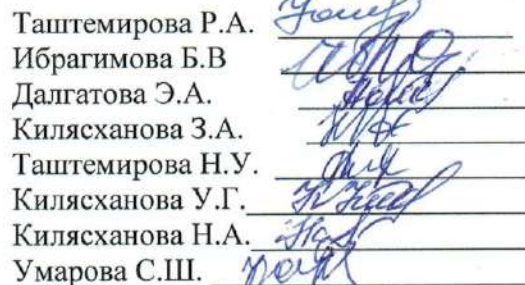 Таштемирова Р.А.
Ибрагимова Б.В
Далгатова Э.А.
Килясханова З.А.
Таштемирова Н.У.
Килясханова У.Г.
Килясханова Н.А.
Умарова С.Ш.